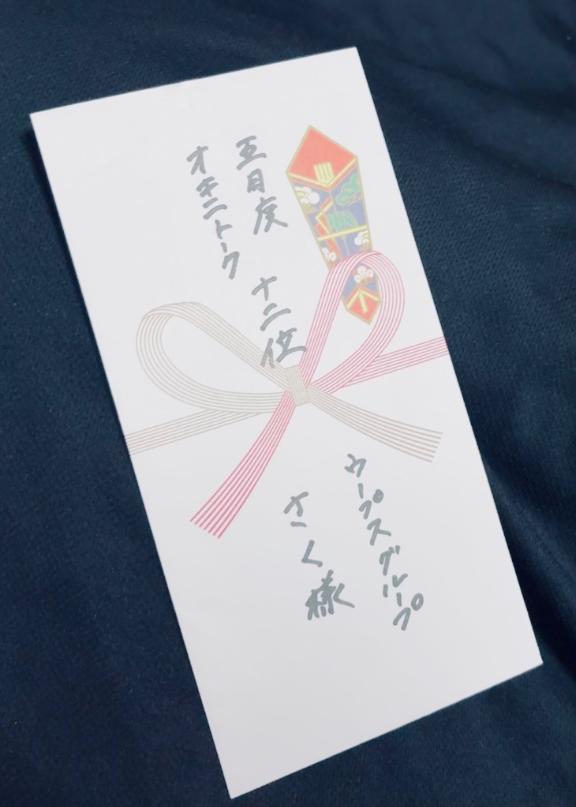 五月度 十二位
オキニトーク
ウープスグループ
さく様